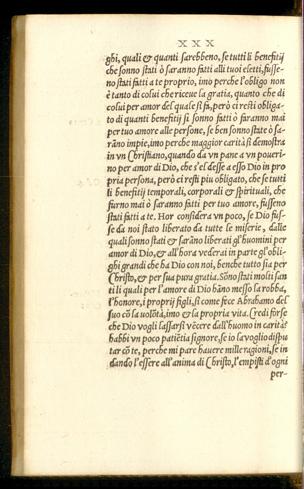 XXX
ghi, quali & quanti sarebbeno, se tutti li benefitij
che sonno stati ò saranno fatti alli tuoi eletti, fusse-
no stati fatti a te proprio, imo perche l'obligo non
è tanto di colui che riceue la gratia, quanto che di
colui per amor del quale si fa, però ci resti obliga-
to di quanti benefitij si sonno fatti ò faranno mai
per tuo amore alle persone, se ben sonno state ò sa-
rāno impie, imo perche maggior carità si demostra
in vn Christiano, quando da vn pane a vn poueri-
no per amor di Dio, che s'el desse a esso Dio in pro
pria persona, però ci resti piu obligato, che se tutti
li benefitij temporali, corporali & spirituali, che
furno mai ò saranno fatti per tuo amore, fusseno
stati fatti a te. Hor considera vn poco, se Dio fus-
se da noi stato liberato da tutte le miserie, dalle
quali sonno stati & sarāno liberati gl'huomini per
amor di Dio, & all'hora vederai in parte gl'obli-
ghi grandi che ha Dio con noi, benche tutto sia per
Christo, & per sua pura gratia. Sōno stati molti san
ti li quali per l'amore di Dio hāno messo la robba,
l'honore, i proprij figli, si come fece Abrahamo del
suo cō la uolōtà, imo & la propria vita. Credi forse
che Dio vogli lassarsi vēcere dall'huomo in carità?
habbi vn poco patiētia signore, se io sa voglio dispu
tar cō te, perche mi pare hauere mille ragioni, se in
dando l'essere all'anima di Christo, l'empisti d'ogni
per-